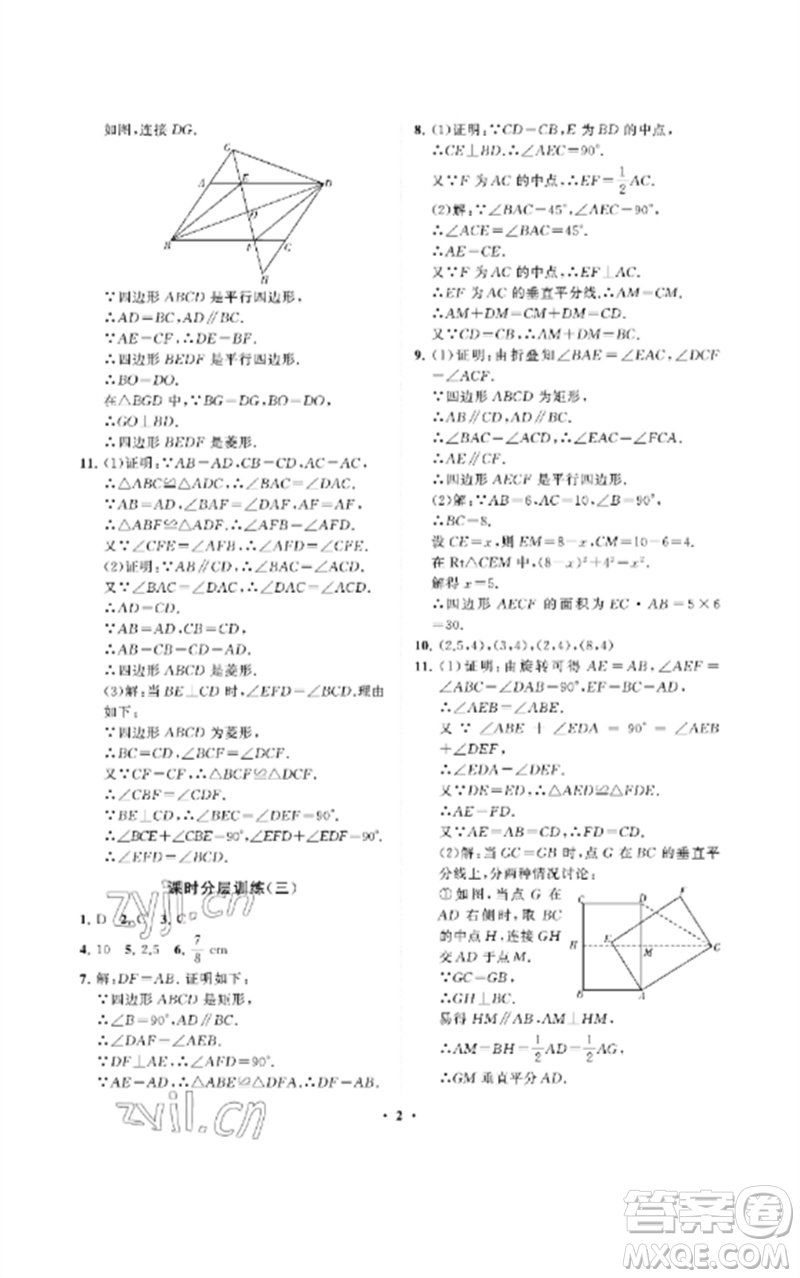 如图,连接 DG.
G
A
E
D
O
B
F
C
H
∵四边形 ABCD 是平行四边形,
∴AD=BC,AD∥BC.
∵AE=CF,∴DE=BF.
∴四边形 BEDF 是平行四边形.
∴BO=DO.
在△BGD 中,∵BG=DG,BO=DO,
∴GO⊥BD.
∴四边形 BEDF 是菱形.
11. (1)证明:∵AB=AD,CB=CD,AC=AC,
∴△ABC≌△ADC,∴∠BAC=∠DAC.
∵AB=AD,∠BAF=∠DAF,AF=AF,
∴△ABF≌△ADF.∴∠AFB=∠AFD.
又∵∠CFE=∠AFB,∴∠AFD=∠CFE.
(2)证明:∵AB∥CD,∴∠BAC=∠ACD.
又∵∠BAC=∠DAC,∴∠DAC=∠ACD.
∴AD=CD.
∵AB=AD,CB=CD,
∴AB=CB=CD=AD.
∴四边形 ABCD 是菱形.
(3)解:当 BE⊥CD 时,∠EFD=∠BCD.理由
如下:
∵四边形 ABCD 为菱形,
∴BC=CD,∠BCF=∠DCF.
又∵CF=CF,∴△BCF≌△DCF.
∴∠CBF=∠CDF.
∵BE⊥CD,∴∠BEC=∠DEF=90°.
∴∠BCE+∠CBE=90°,∠EFD+∠EDF=90°.
∴∠EFD=∠BCD.
课时分层训练(三)
1. D 2. C 3. C
4. 10 5. 2.5 6. 7/8 cm
7. 解:DF=AB. 证明如下:
∵四边形 ABCD 是矩形,
∴∠B=90°,AD∥BC.
∴∠DAF=∠AEB.
∵DF⊥AE,∴∠AFD=90°.
∵AE=AD,∴△ABE≌△DFA.∴DF=AB.
zyjl.cn
zyjl.cn
8. (1)证明:∵CD=CB,E 为 BD 的中点,
∴CE⊥BD.∴∠AEC=90°.
又∵F 为 AC 的中点,∴EF=1/2AC.
(2)解:∵∠BAC=45°,∠AEC=90°,
∴∠ACE=∠BAC=45°.
∴AE=CE.
又∵F 为 AC 的中点,∴EF⊥AC.
∴EF 为 AC 的垂直平分线.∴AM=CM.
∴AM+DM=CM+DM=CD.
又∵CD=CB,∴AM+DM=BC.
9. (1)证明:由折叠知∠BAE=∠EAC,∠DCF
=∠ACF.
∵四边形 ABCD 为矩形,
∴AB∥CD,AD∥BC.
∴∠BAC=∠ACD.∴∠EAC=∠FCA.
∴AE∥CF.
∴四边形 AECF 是平行四边形.
(2)解:∵AB=6,AC=10,∠B=90°,
∴BC=8.
设 CE=x,则 EM=8-x,CM=10-6=4.
在 Rt△CEM 中,(8-x)²+4²=x².
解得 x=5.
∴四边形 AECF 的面积为 EC·AB=5×6
=30.
10. (2.5,4),(3,4),(2,4),(8,4)
11. (1)证明:由旋转可得 AE=AB,∠AEF=
∠ABC=∠DAB=90°,EF=BC=AD.
∴∠AEB=∠ABE.
又∵∠ABE+∠EDA=90°=∠AEB
+∠DEF,
∴∠EDA=∠DEF.
又∵DE=ED,∴△AED≌△FDE.
∴AE=FD.
又∵AE=AB=CD,∴FD=CD.
(2)解:当 GC=GB 时,点 G 在 BC 的垂直平
分线上,分两种情况讨论:
①如图,当点 G 在
AD 右侧时,取 BC
的中点 H,连接 GH
交 AD 于点 M.
∵GC=GB,
∴GH⊥BC.
C
D
F
H
E
M
G
B
A
易得 HM∥AB,AM⊥HM,
∴AM=BH=1/2AD=1/2AG.
∴GM 垂直平分 AD.
• 2 •
答案卷
MXQE.COM